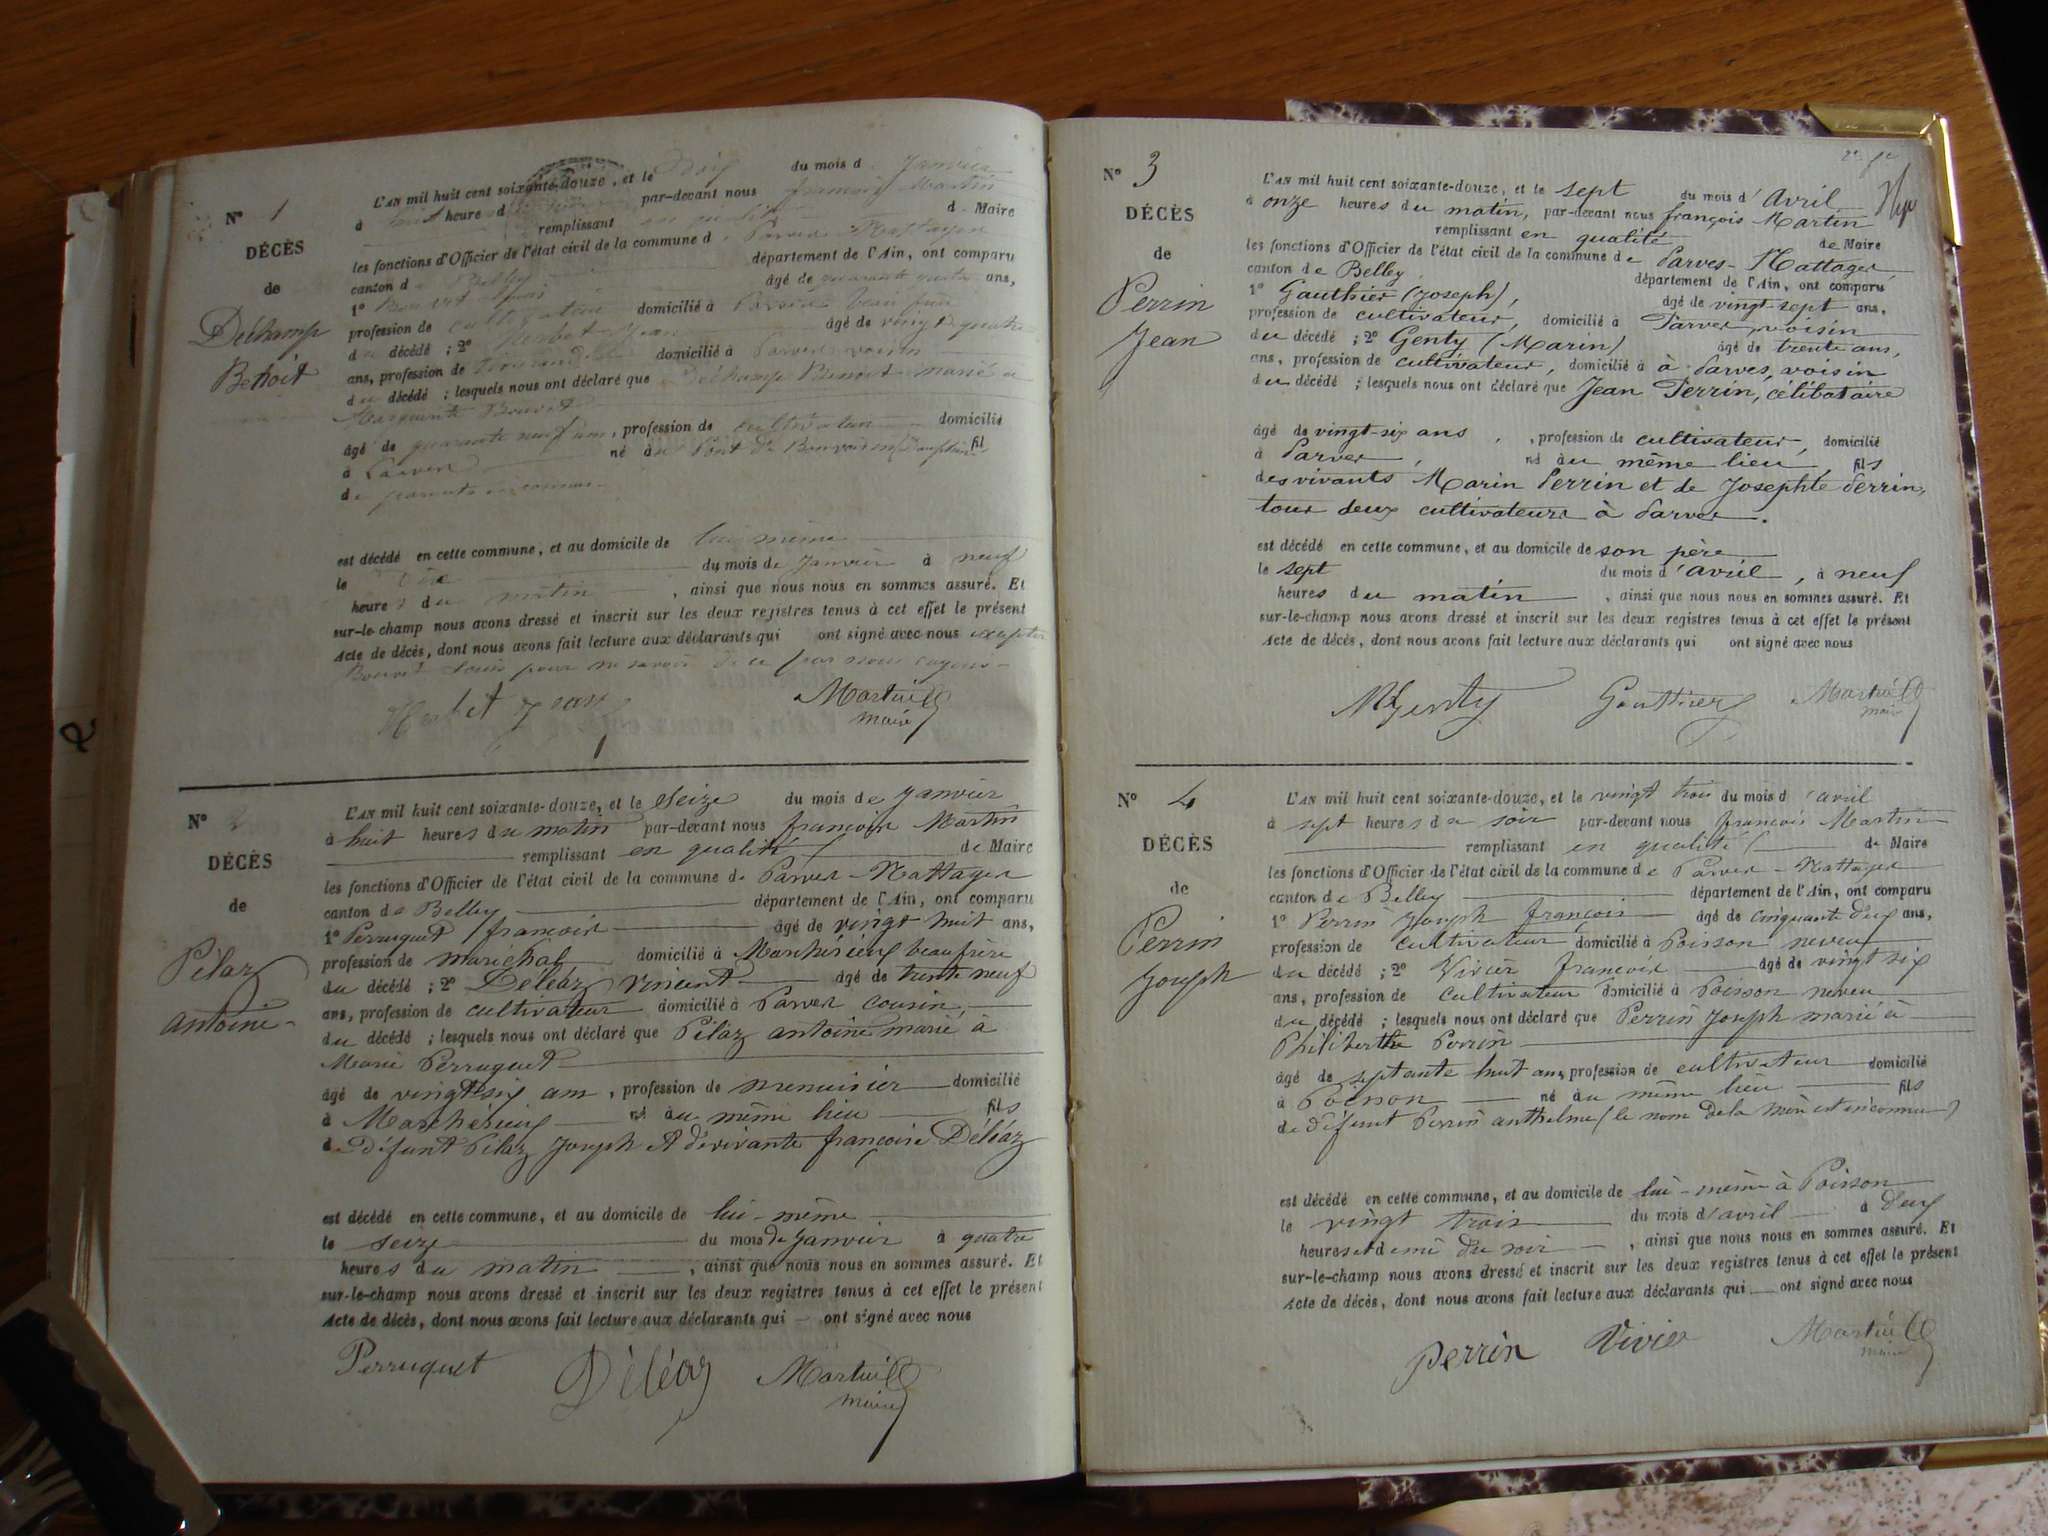 N° 1
DÉCÈS
de
Délhamp
Benoit
L'AN mil huit cent soixante-douze, et le Dix du mois d Janvier
à huit heure d par-devant nous françois Martin
remplissant en qualité d Maire
les fonctions d'Officier de l'état civil de la commune d Parves-Nattages
canton d Belley département de l'Ain, ont comparu
1° Bouvet Louis âgé de quarante quatre ans,
profession de cultivateur domicilié à Parves beau frère
du décédé ; 2° Herbet Jean âgé de vingt quatre
ans, profession de domicilié à Parves voisin
du décédé ; lesquels nous ont déclaré que Délhamp Benoit marié à
Marguerite Bouvet
âgé de quarante neuf ans, profession de cultivateur domicilié
à Parves né au Pont de Beauvoisin fil
de parents inconnus
est décédé en cette commune, et au domicile de lui même
le dix du mois de Janvier à neuf
heures du matin , ainsi que nous nous en sommes assuré. Et
sur-le-champ nous avons dressé et inscrit sur les deux registres tenus à cet effet le présent
Acte de décès, dont nous avons fait lecture aux déclarants qui ont signé avec nous excepté
Bouvet Louis pour ne savoir de ce par nous enquis
Herbet Jean Martin
maire
N° 2
DÉCÈS
de
Pélaz
antoine
L'AN mil huit cent soixante-douze, et le Seize du mois de Janvier
à huit heures du matin par-devant nous françois Martin
remplissant en qualité de Maire
les fonctions d'Officier de l'état civil de la commune de Parves-Nattages
canton de Belley département de l'Ain, ont comparu
1° Perruquet françois âgé de vingt huit ans,
profession de maréchal domicilié à Marchérieux beau frère
du décédé ; 2° Déléaz vincent âgé de trente neuf
ans, profession de cultivateur domicilié à Parves cousin
du décédé ; lesquels nous ont déclaré que Pélaz antoine marié à
Marie Perruquet
âgé de vingt six ans, profession de menuisier domicilié
à Marchérieux né au même lieu fils
de Défunt Pélaz Joseph et de vivante françoise Déléaz
est décédé en cette commune, et au domicile de lui-même
le seize du mois de Janvier à quatre
heures du matin , ainsi que nous nous en sommes assuré. Et
sur-le-champ nous avons dressé et inscrit sur les deux registres tenus à cet effet le présent
Acte de décès, dont nous avons fait lecture aux déclarants qui — ont signé avec nous
Perruquet Déléaz Martin
maire
N° 3
DÉCÈS
de
Perrin
Jean
L'AN mil huit cent soixante-douze, et le sept du mois d'Avril
à onze heures du matin, par-devant nous françois Martin
remplissant en qualité de Maire
les fonctions d'Officier de l'état civil de la commune de Parves-Nattages,
canton de Belley, département de l'Ain, ont comparu
1° Gauthier (Joseph), âgé de vingt-sept ans,
profession de cultivateur, domicilié à Parves, voisin
du décédé ; 2° Genty (Marin) âgé de trente ans,
ans, profession de cultivateur, domicilié à à Parves, voisin
du décédé ; lesquels nous ont déclaré que Jean Perrin, célibataire
âgé de vingt-six ans, profession de cultivateur, domicilié
à Parves, né au même lieu, fils
des vivants Marin Perrin et de Josephte Perrin,
tous deux cultivateurs à Parves.
est décédé en cette commune, et au domicile de son père
le sept du mois d'avril, à neuf
heures du matin , ainsi que nous nous en sommes assuré. Et
sur-le-champ nous avons dressé et inscrit sur les deux registres tenus à cet effet le présent
Acte de décès, dont nous avons fait lecture aux déclarants qui ont signé avec nous
MGenty Gauthier Martin
maire
N° 4
DÉCÈS
de
Perrin
Joseph
L'AN mil huit cent soixante-douze, et le vingt trois du mois d'avril
à sept heures du soir par-devant nous françois Martin
remplissant en qualité de Maire
les fonctions d'Officier de l'état civil de la commune de Parves-Nattages
canton de Belley département de l'Ain, ont comparu
1° Perrin Joseph françois âgé de cinquante deux ans,
profession de cultivateur domicilié à Poisson neveu
du décédé ; 2° Vivier françois âgé de vingt six
ans, profession de cultivateur domicilié à Poisson neveu
du décédé ; lesquels nous ont déclaré que Perrin Joseph marié à
Philiberthe Perrin
âgé de septante huit ans, profession de cultivateur domicilié
à Poisson né au même lieu fils
de défunt Perrin anthelme (le nom de la mère est inconnu)
est décédé en cette commune, et au domicile de lui-même à Poisson
le vingt trois du mois d'avril à deux
heures et demie du soir , ainsi que nous nous en sommes assuré. Et
sur-le-champ nous avons dressé et inscrit sur les deux registres tenus à cet effet le présent
Acte de décès, dont nous avons fait lecture aux déclarants qui — ont signé avec nous
Perrin Vivier Martin
maire